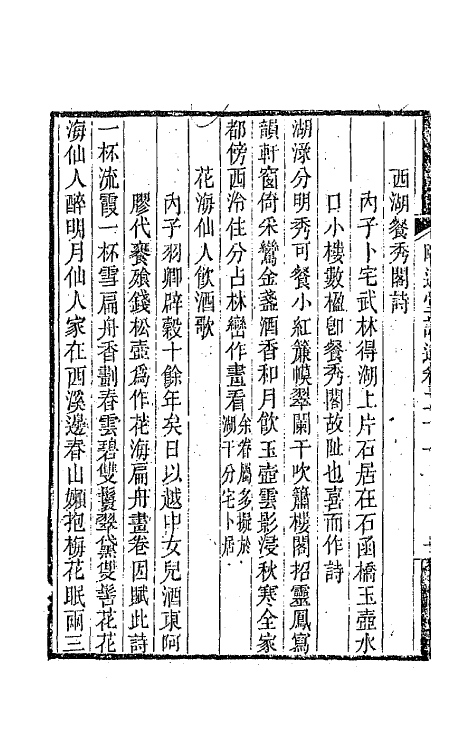 西湖餐秀閣詩
內子卜宅武林得湖上片石居在石函橋玉壺水
口小樓數楹卽餐秀閣故阯也喜而作詩
湖淥分明秀可餐小紅簾幙翠闌干吹簫樓閣招靈鳳寫
韻軒窗倚采鸞金盞酒香和月飲玉壺雲影浸秋寒全家
都傍西泠住分占林巒作畫看余眷屬多擬於湖干分宅卜居
花海仙人飲酒歌
內子羽卿辟穀十餘年矣日以越中女兒酒東阿
膠代饔飱錢松壺爲作花海扁舟畫卷因賦此詩
一杯流霞一杯雪扁舟香劃春雲碧雙鬟翠黛雙髻花花
海仙人醉明月仙人家在西溪邊春山嬾抱梅花眠兩三